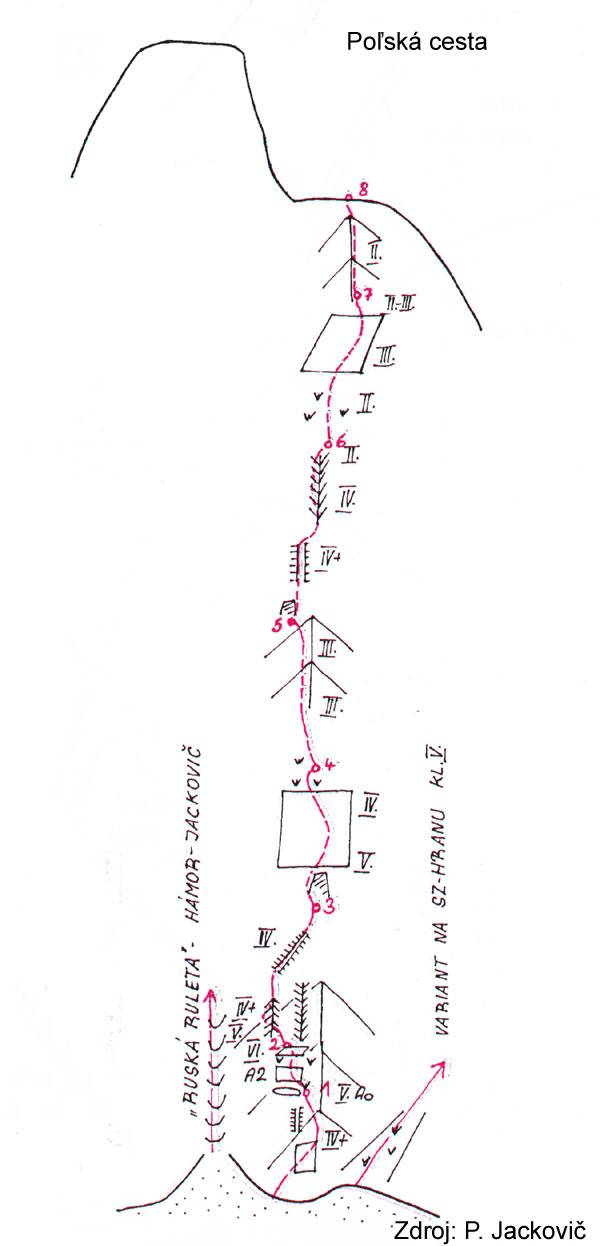 Poľská cesta
8
II.
7
II.-III.
III.
II.
6
II.
IV.
IV+
5
III.
III.
4
IV.
V.
3
IV.
„RUSKÁ RULETA“ - HÁMOR-JACKOVIČ
VARIANT NA SZ-HRANU KL.V.
IV+
V.
2
VI.
A2
1
V.A0
IV+
Zdroj: P. Jackovič